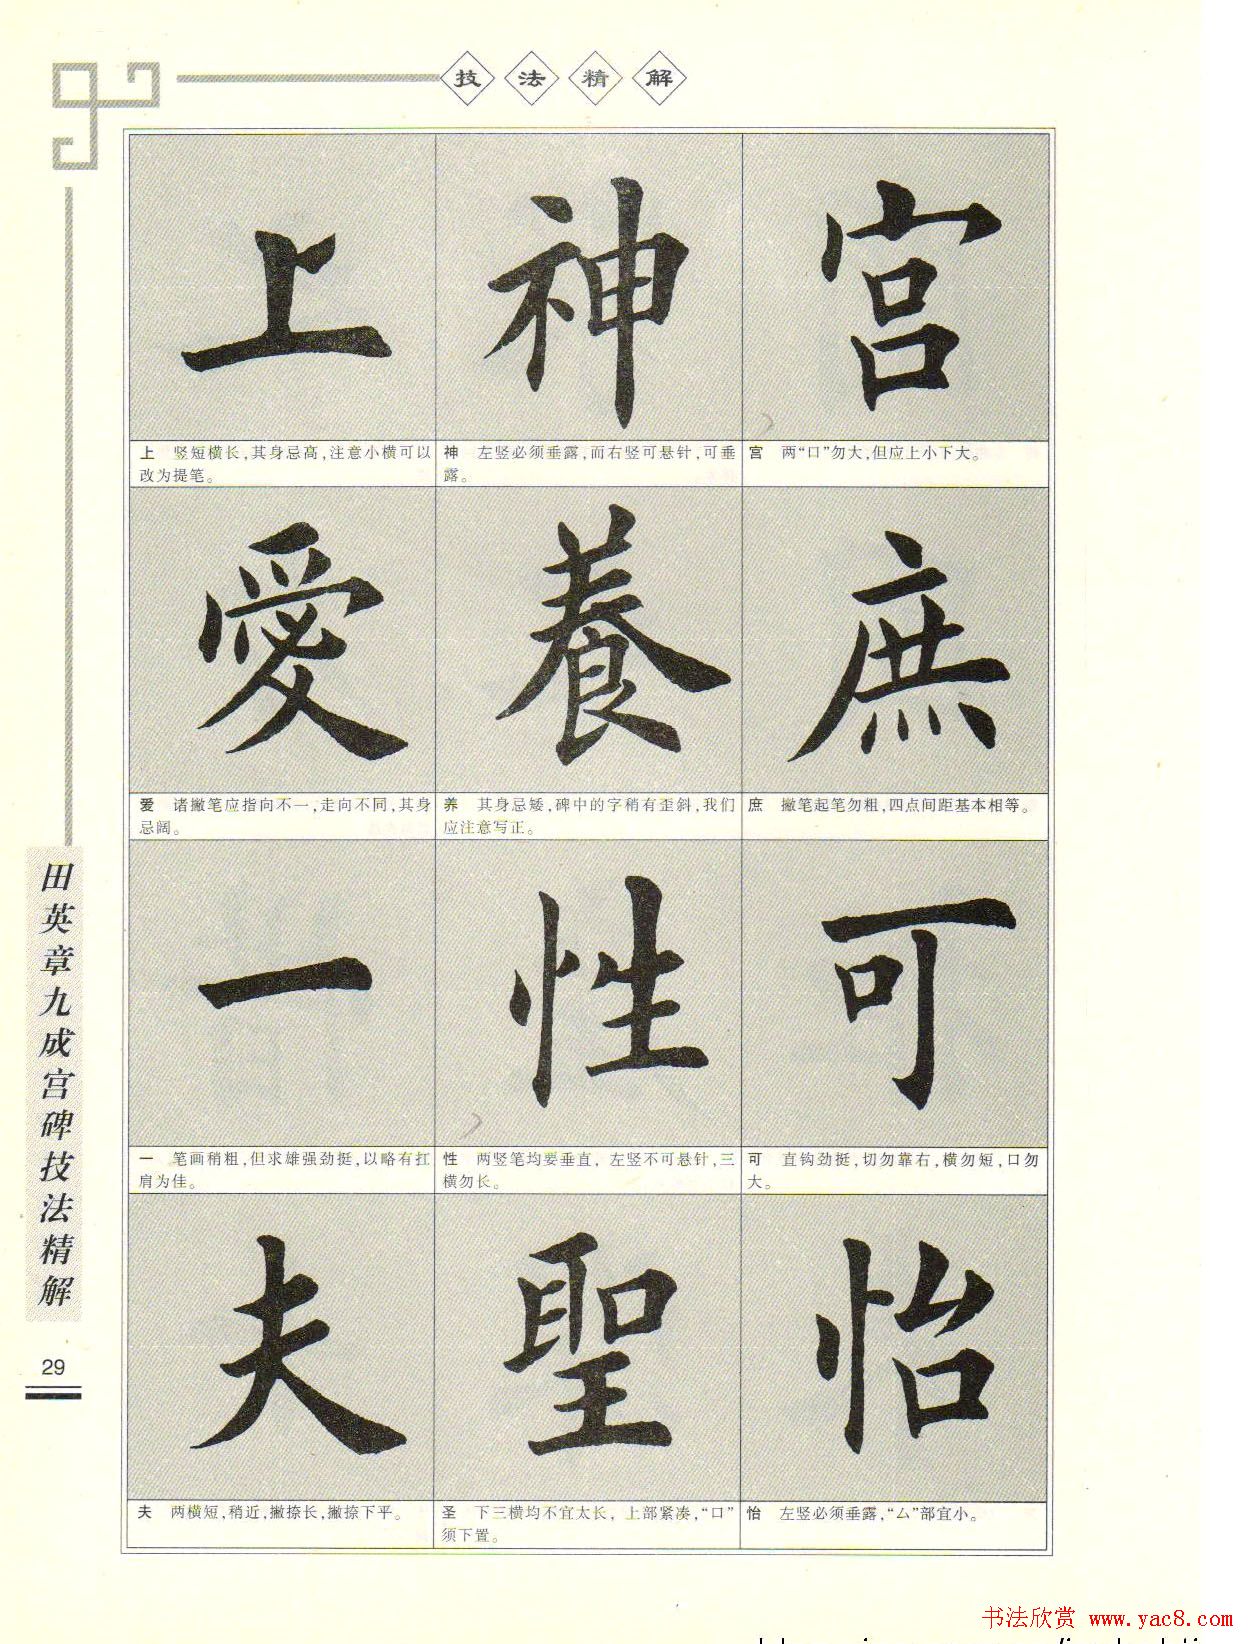 技法精解
上 神 宫
上 竖短横长,其身忌高,注意小横可以
改为提笔。
神 左竖必须垂露,而右竖可悬针,可垂
露。
宫 两“口”勿大,但应上小下大。
愛 養 庶
爱 诸撇笔应指向不一,走向不同,其身
忌阔。
养 其身忌矮,碑中的字稍有歪斜,我们
应注意写正。
庶 撇笔起笔勿粗,四点间距基本相等。
一 性 可
一 笔画稍粗,但求雄强劲挺,以略有扛
肩为佳。
性 两竖笔均要垂直,左竖不可悬针,三
横勿长。
可 直钩劲挺,切勿靠右,横勿短,口勿
大。
夫 聖 怡
夫 两横短,稍近,撇捺长,撇捺下平。
圣 下三横均不宜太长,上部紧凑,“口”
须下置。
怡 左竖必须垂露,“厶”部宜小。
田英章九成宫碑技法精解
29
书法欣赏 www.yac8.com